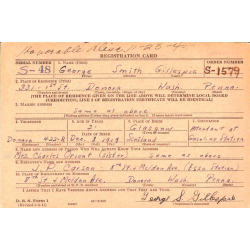 Honorable Disc. 1-25-4
REGISTRATION CARD
SERIAL NUMBER 1. NAME (Print) ORDER NUMBER
S-48 George Smith Gillespie S-1579
2. PLACE OF RESIDENCE (Print)
331-1st St. Donora Wash. Penna.
[THE PLACE OF RESIDENCE GIVEN ON THE LINE ABOVE WILL DETERMINE LOCAL BOARD
JURISDICTION; LINE 2 OF REGISTRATION CERTIFICATE WILL BE IDENTICAL]
3. MAILING ADDRESS
Same as above
4. TELEPHONE 5. AGE IN YEARS 6. PLACE OF BIRTH
21 Glasgow
Donora 422-R Dec. 1919 Scotland
7. NAME AND ADDRESS OF PERSON WHO WILL ALWAYS KNOW YOUR ADDRESS
(Sister) same as above
8. EMPLOYER'S NAME AND ADDRESS
J. P. 8th St & Meldon Ave (Esso Station)
9. PLACE OF EMPLOYMENT OR BUSINESS
8th St & Meldon Ave. Donora Wash. Penna.
I AFFIRM THAT I HAVE VERIFIED ABOVE ANSWERS AND THAT THEY ARE TRUE.
D. S. S. Form 1
George S. Gillespie